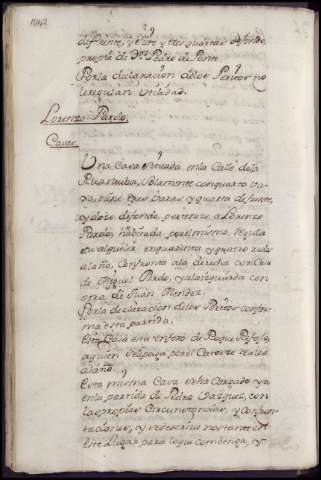 de frente, y siete y tres quartas de fondo,
propia de Dn. Pedro de Ponte.
Por la declaracion de los Peritos no
le regulan utilidad.
Lorenzo Pardo.
Casas.
Una Casa situada en la Calle de la
Rua nueba, solamente con quarto vaxo,
tiene tres varas y quarta de frente,
y doze de fondo, pertenece a Lorenzo
Pardo, habitada por el mismo, regula
en alquiler en quarenta y quatro reales
al año. Confronta a la derecha con Casa
de Miguel Pardo, y a la izquierda con
otra de Juan Mendez.
Por la declaracion de los Peritos confor-
ma esta partida.
esta Casa esta
a quien se paga por el catorze reales
al año.
Esta misma Casa esta Cargada ya
en la partida de Pedro Vazquez, con
las propias Circunstancias, y confron-
taciones, y
este Lugar para lo que comienza, y